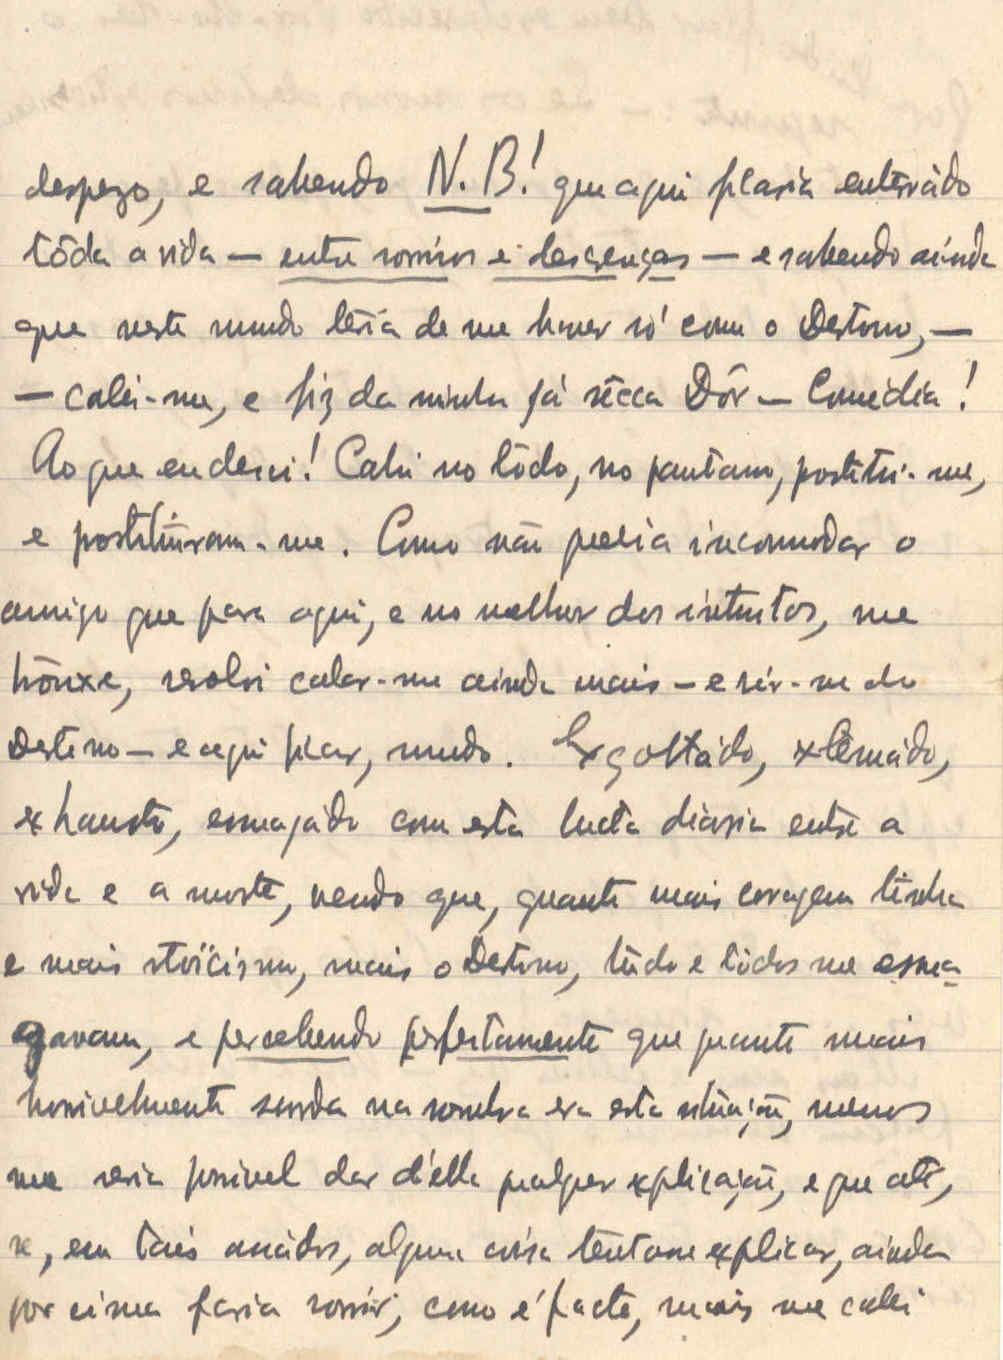 despezo, e sabendo N. B.! que aqui ficaria enterrádo
tôda a vida — entre sorrisos e descrenças — e sabendo aínda
que neste mundo tería de me haver só como o Destino, —
— calei-me, e fiz da minha já sêcca Dôr — Comédia!
Ao que eu desci! Cahi no lôdo, no pantano, postitui-me,
e postituíram-me. Como não queria incommodar o
amigo que para aqui, e no melhor dos intuitos, me
trouxe, resolvi calar-me ainda mais — e rir-me do
Destino — e aqui ficar, mudo. Exgottádo, extêrmado,
exhausto, esmagádo com esta lucta diária entre a
vida e a morte, vendo que, quanto mais coragem tinha
e mais stoïcismo, mais o Destino, tudo e todos me esma-
gavam, e percebendo perfeitamente que quanto mais
horrivelmente surda na sombra era esta situação, menos
me seria possivel dar d'ella qualquer explicação, e que até,
se, em taes cnácidos, alguma coisa tentasse explicar, aínda
por címa faria sorrír, como é facto, mais me calei